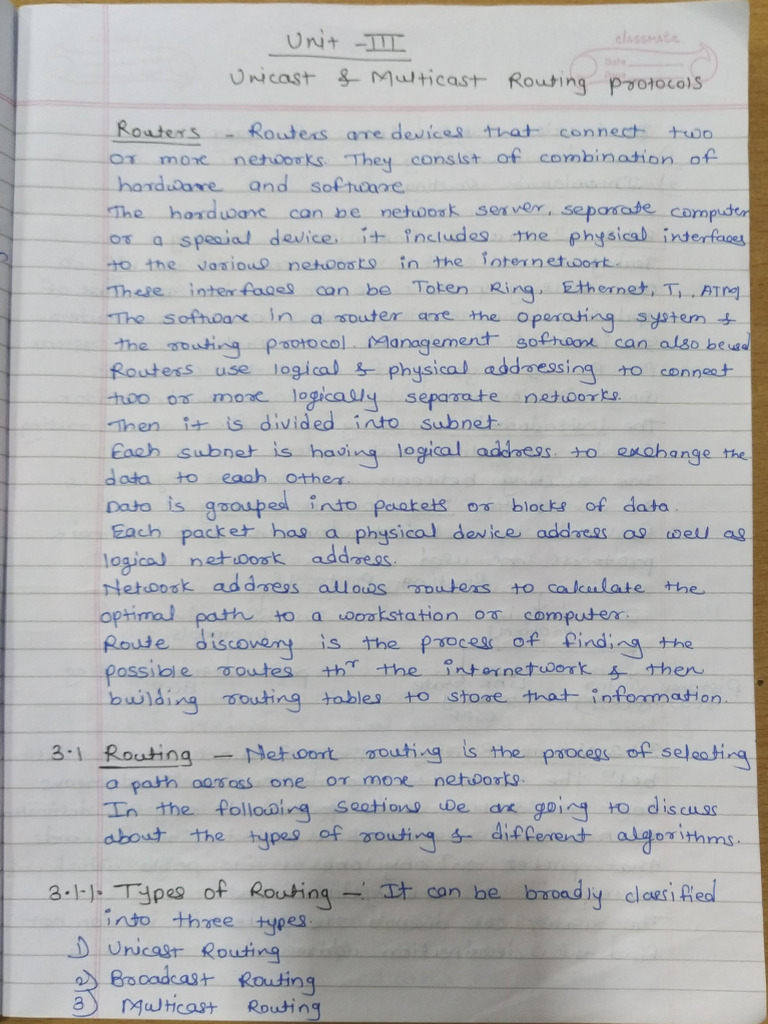 classmate
Date
Unit - III
Unicast & Multicast Routing Protocols
Routers - Routers are devices that connect two
or more networks. They consist of combination of
hardware and software
The hardware can be network server, separate computer
or a special device. it includes the physical interfaces
to the various networks in the internetwork.
These interfaces can be Token Ring, Ethernet, T1, ATM
The software in a router are the operating system &
the routing protocol. Management software can also be used
Routers use logical & physical addressing to connect
two or more logically separate networks.
Then it is divided into subnet.
Each subnet is having logical address. to exchange the
data to each other.
Data is grouped into packets or blocks of data.
Each packet has a physical device address as well as
logical network address.
Network address allows routers to calculate the
optimal path to a workstation or computer.
Route discovery is the process of finding the
possible routes thr the internetwork & then
building routing tables to store that information.
3.1 Routing - Network routing is the process of selecting
a path across one or more networks.
In the following sections we are going to discuss
about the types of routing & different algorithms.
3.1.1. Types of Routing -: It can be broadly classified
into three types.
1) Unicast Routing
2) Broadcast Routing
3) Multicast Routing